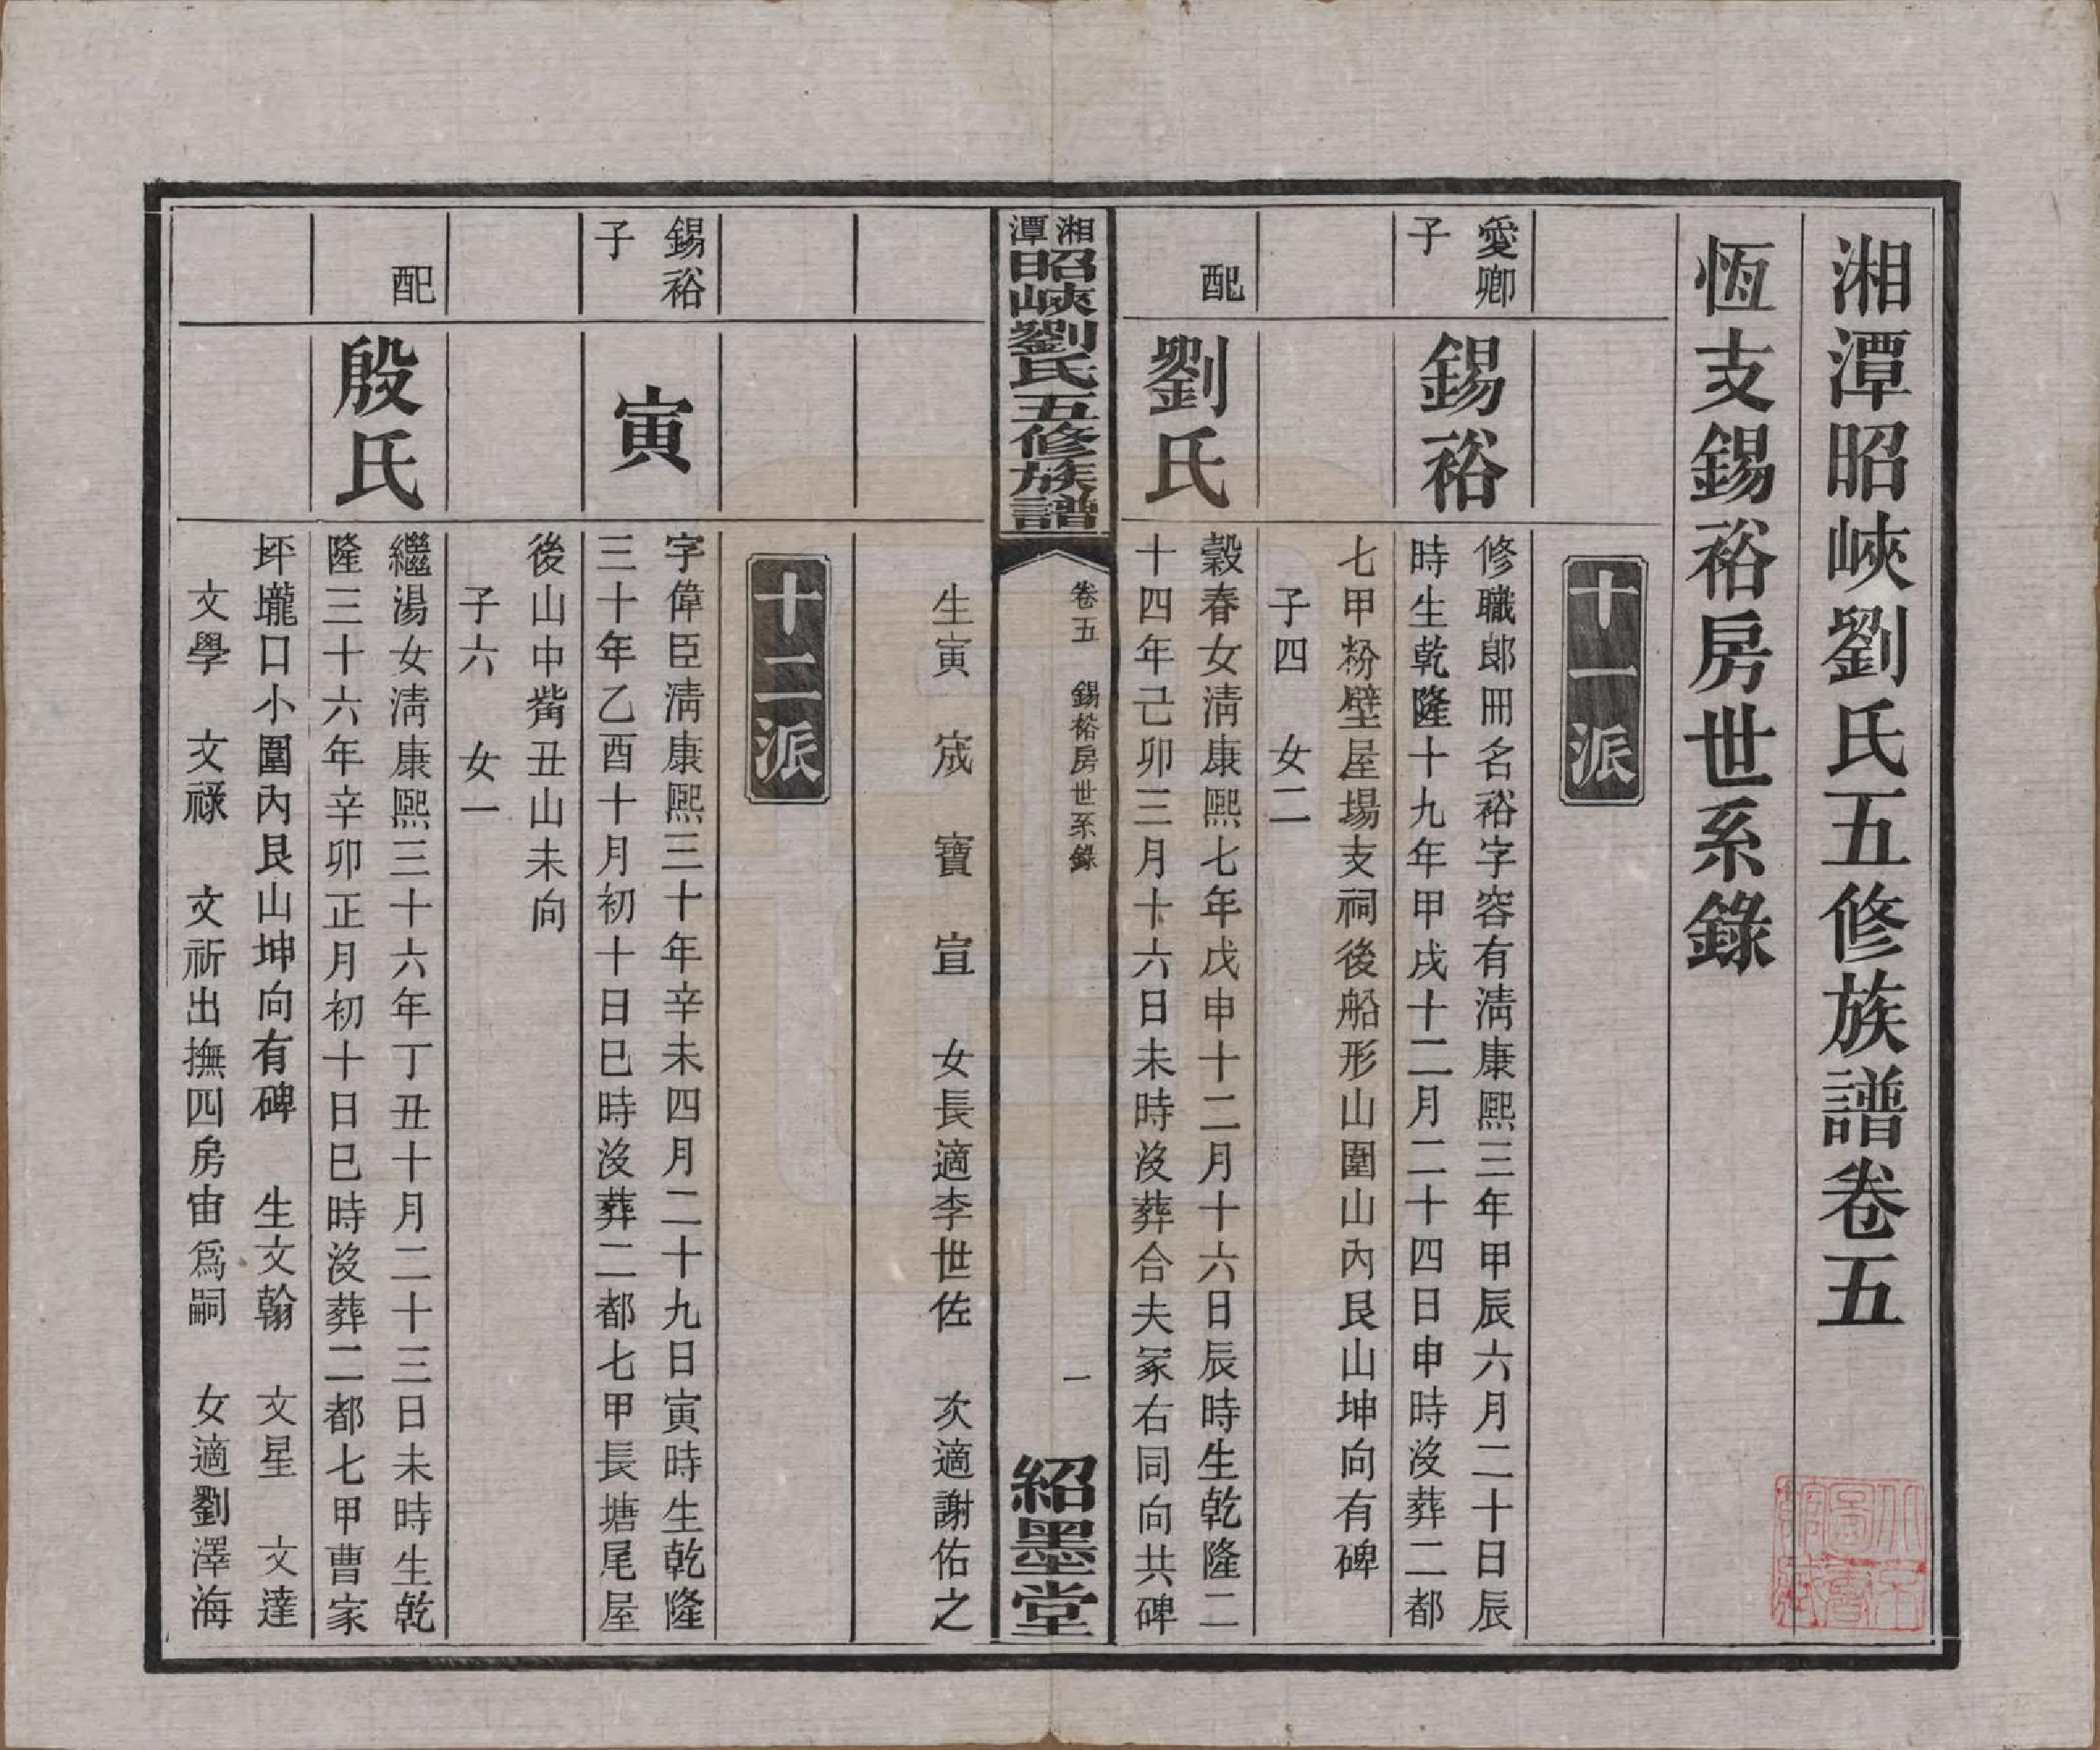 湘潭昭峽劉氏五修族譜卷五
恆支錫裕房世系錄
十一派
愛卿子
錫裕
修職郎冊名裕字容有淸康熙三年甲辰六月二十日辰
時生乾隆十九年甲戌十二月二十四日申時沒葬二都
七甲粉壁屋場支祠後船形山圍山內艮山坤向有碑
子四　女二
配
劉氏
穀春女淸康熙七年戊申十二月十六日辰時生乾隆二
十四年己卯三月十六日未時沒葬合夫冢右同向共碑
湘潭昭峽劉氏五修族譜
卷五　錫裕房世系錄
一
紹墨堂
生寅　宬　寶　宣　女長適李世佐　次適謝佑之
十二派
錫裕子
寅
字偉臣淸康熙三十年辛未四月二十九日寅時生乾隆
三十年乙酉十月初十日巳時沒葬二都七甲長塘尾屋
後山中觜丑山未向
子六　女一
配
殷氏
繼湯女淸康熙三十六年丁丑十月二十三日未時生乾
隆三十六年辛卯正月初十日巳時沒葬二都七甲曹家
坪壠口小圍內艮山坤向有碑　生文翰　文星　文達
文學　文祿　文祈出撫四房宙爲嗣　女適劉澤海